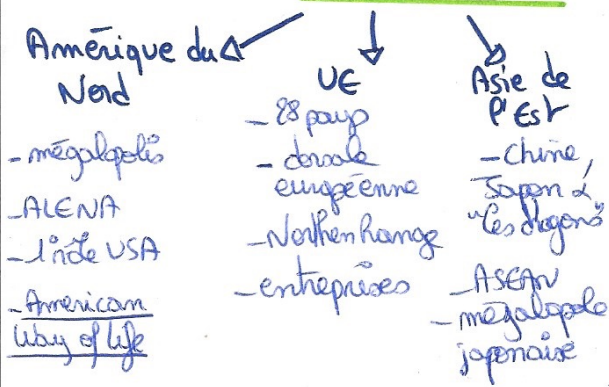 Amérique du
Nord
- mégalopolis
- ALENA
- American
Way of Life
UE
- 28 pays
- dorsale
européenne
- Northen Range
- entreprises
Asie de
l'Est
- Chine,
Japon &
"les dragons"
- ASEAN
- mégalopole
japonaise